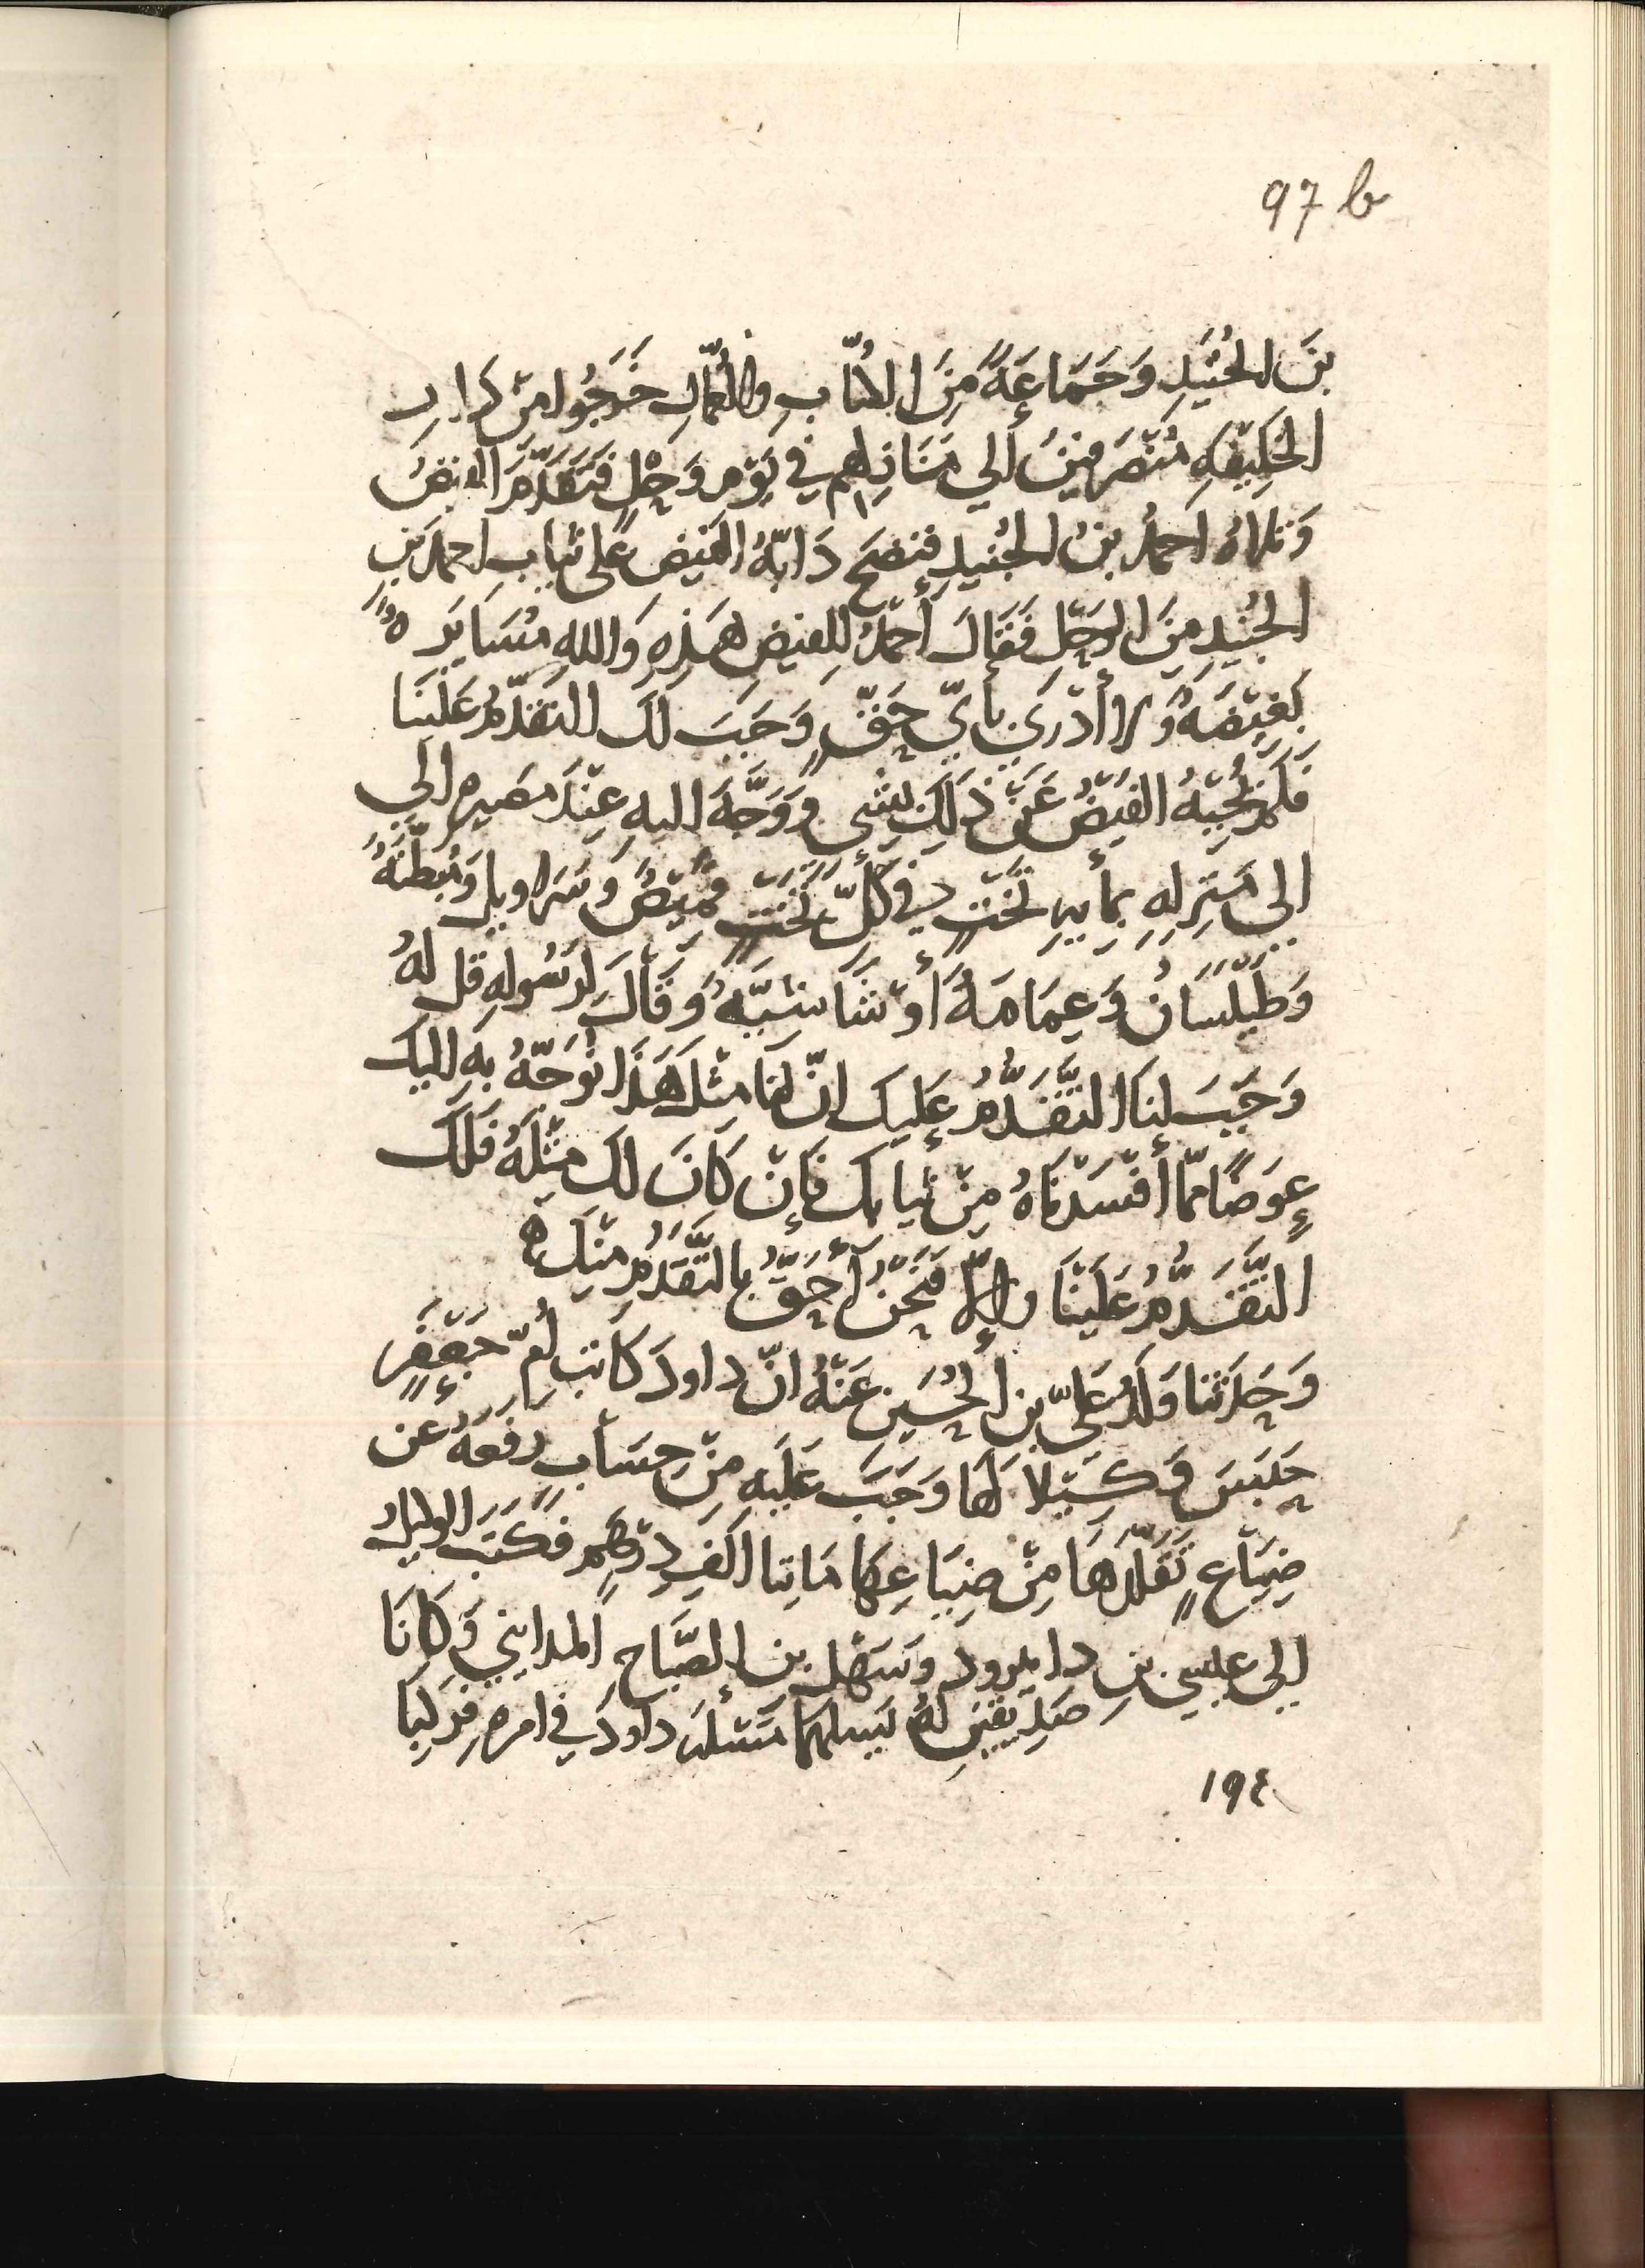 97 b
بنَ الجُنَيدِ وَجَمَاعَةً مِنَ الكُتّابِ والعُمّالِ خَرَجُوا مِنْ دَارِ
الخَلِيفَهِ مُنْصَرِفينَ إلي مَنَازِلهم في يَوْمِ وَحْلٍ فَتَقَدَّمَ الفَيْضُ
وَتلاهُ احمدُ بنُ الجُنيدِ فنضحَ دَابّةُ الفيضِ عَلى ثيابِ احمدَ بنِ
الجُنيدِ مِنَ الوَحَلِ فَقَالَ أَحمدُ لِلفيضِ هَذِهِ وَاللهِ مُسَايَرَهٌ
بَغِيْضَهٌ وَلا أَدْرِي بأيّ حَقٍّ وَجَبَ لَكَ التقدّمُ عَلَيْنَا
فَلَمْ يُجِبْهُ الفَيْضُ عَنْ ذَلِكَ بشي وَوَجَّهَ اليهِ عِنْدَ مَصيرِهِ الي
الى مَنْزِلِهِ بمأيهِ تَخْتٍ في كُلِّ تَخْتٍ قَمِيْصٌ وَسَرَاويلُ وَمُبَطّنَهٌ
وَطَيْلَسَانٌ وَعِمَامَهٌ أَوْ شَاشيّهٌ وَقَالَ لِرَسُولِهِ قُل لَهُ
وَجَبَ لنَا التَّقَدُّمُ عليكَ انّ لنا مثلَ هَذَا نُوَجّهُ بِهِ اليكَ
عِوَضًا مَمّا أَفْسَدْنَاهُ مِنْ ثيابِكَ فَإنْ كَانَ لَكَ مِثْلَهُ فَلَكَ
التَّقَدُّمُ عَلَيْنَا وإلّا فَنَحْنُ أَحَقُّ بالتَّقَدُّمِ مِنْكَ ه
وَحَدَثنا وَلَدُ عَليّ بن الحُسَين عَنْهُ انّ داودَ كَاتبَ أُمّ جَعْفَرٍ
حَبَسَ وَكِيْلا لَهَا وَجَبَ عَلَيهِ مِنْ حِسَابٍ رَفَعَهُ عن
ضِيَاعٍ تَقَلّدَهَا مِنْ ضِيَاعِهَا مَاتِا الفِ دِرْهَمٍ فَكَتَبَ الوكيلُ
إلى عيسي بنِ دابرود وَسَهْلِ بن الصَّبَّاحِ المدايني وَكَانَا
صَدِيْقَيْنِ لَهُ يَسلهمَا مَسْئلَهَ داودَ في امرِهِ فَركِبَا
١٩٤